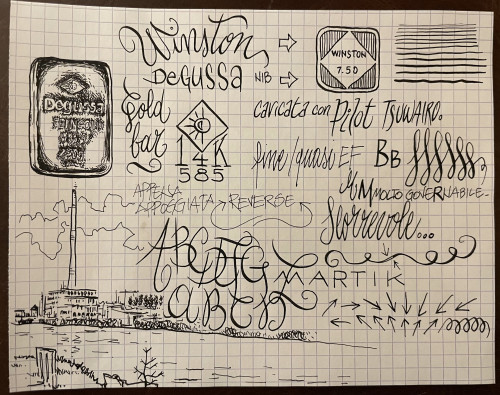 Winston
DeGussa NIB
WINSTON
7.50
Degussa
Gold
bar
14K
585
caricata con Pilot TSUWAIRO.
fine/quasi EF BB
MMOLTO GOVERNABILE-
APPENA
APPOGGIATA REVERSE
Scorrevole...
ABCDEFG MARTIK